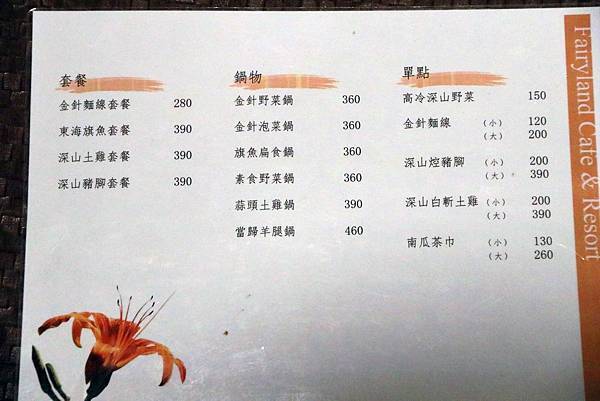 套餐
金針麵線套餐 280
東海旗魚套餐 390
深山土雞套餐 390
深山豬腳套餐 390
鍋物
金針野菜鍋 360
金針泡菜鍋 360
旗魚扁食鍋 360
素食野菜鍋 360
蒜頭土雞鍋 390
當歸羊腿鍋 460
單點
高冷深山野菜 150
金針麵線 (小) 120
(大) 200
深山焢豬腳 (小) 200
(大) 390
深山白斬土雞 (小) 200
(大) 390
南瓜茶巾 (小) 130
(大) 260
Fairyland Cafe & Resort